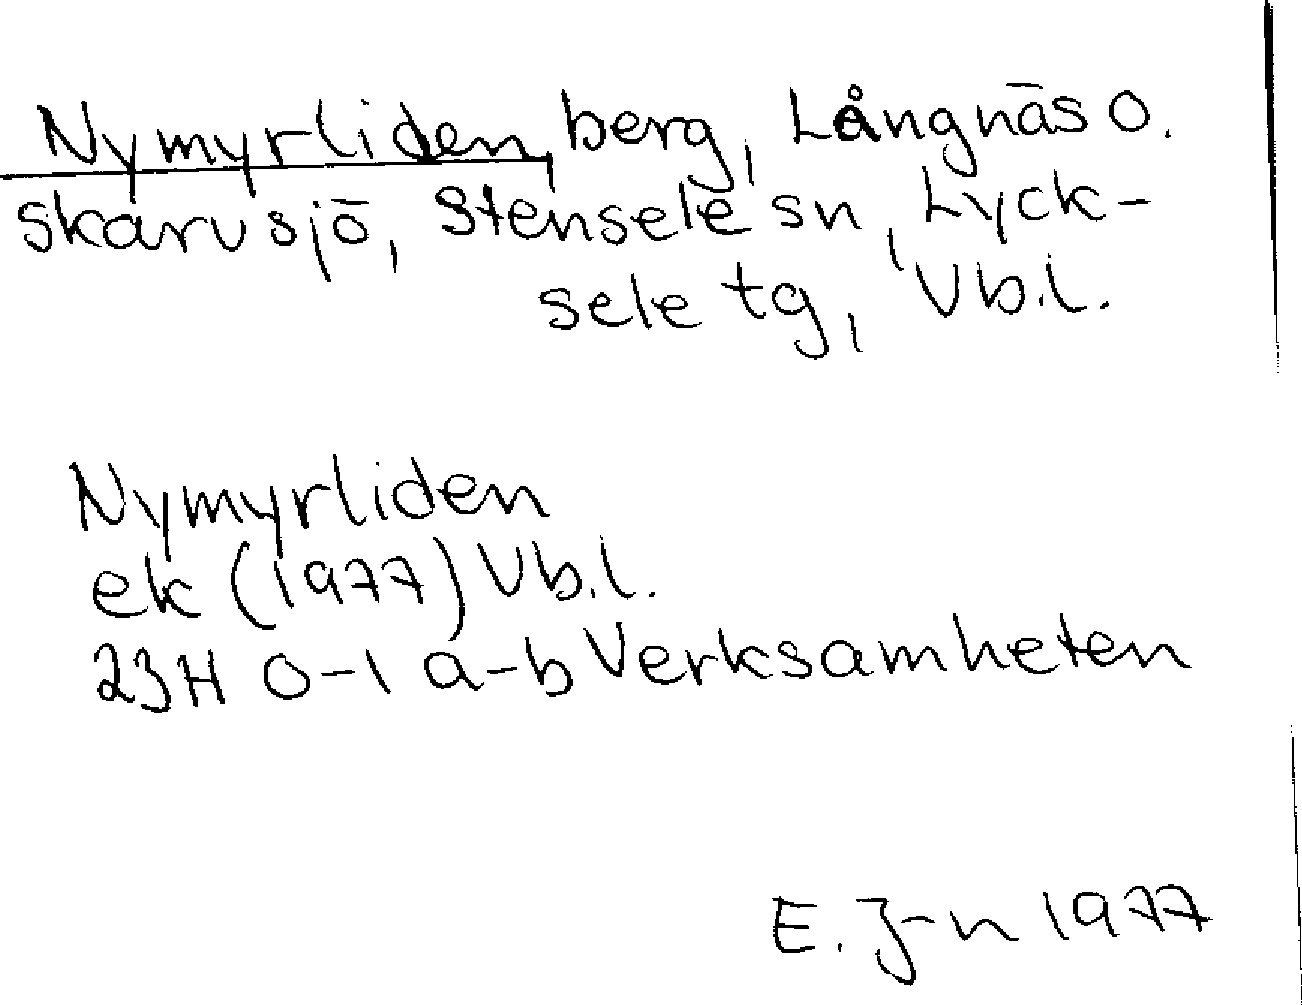 Nymyrliden, berg, Långnäs o.
Skarvsjö, Stensele sn, Lyck-
sele tg, Vb.l.
Nymyrliden
ek (1977) Vb.l.
23H 0-1 a-b Verksamheten
E. J-n 1977